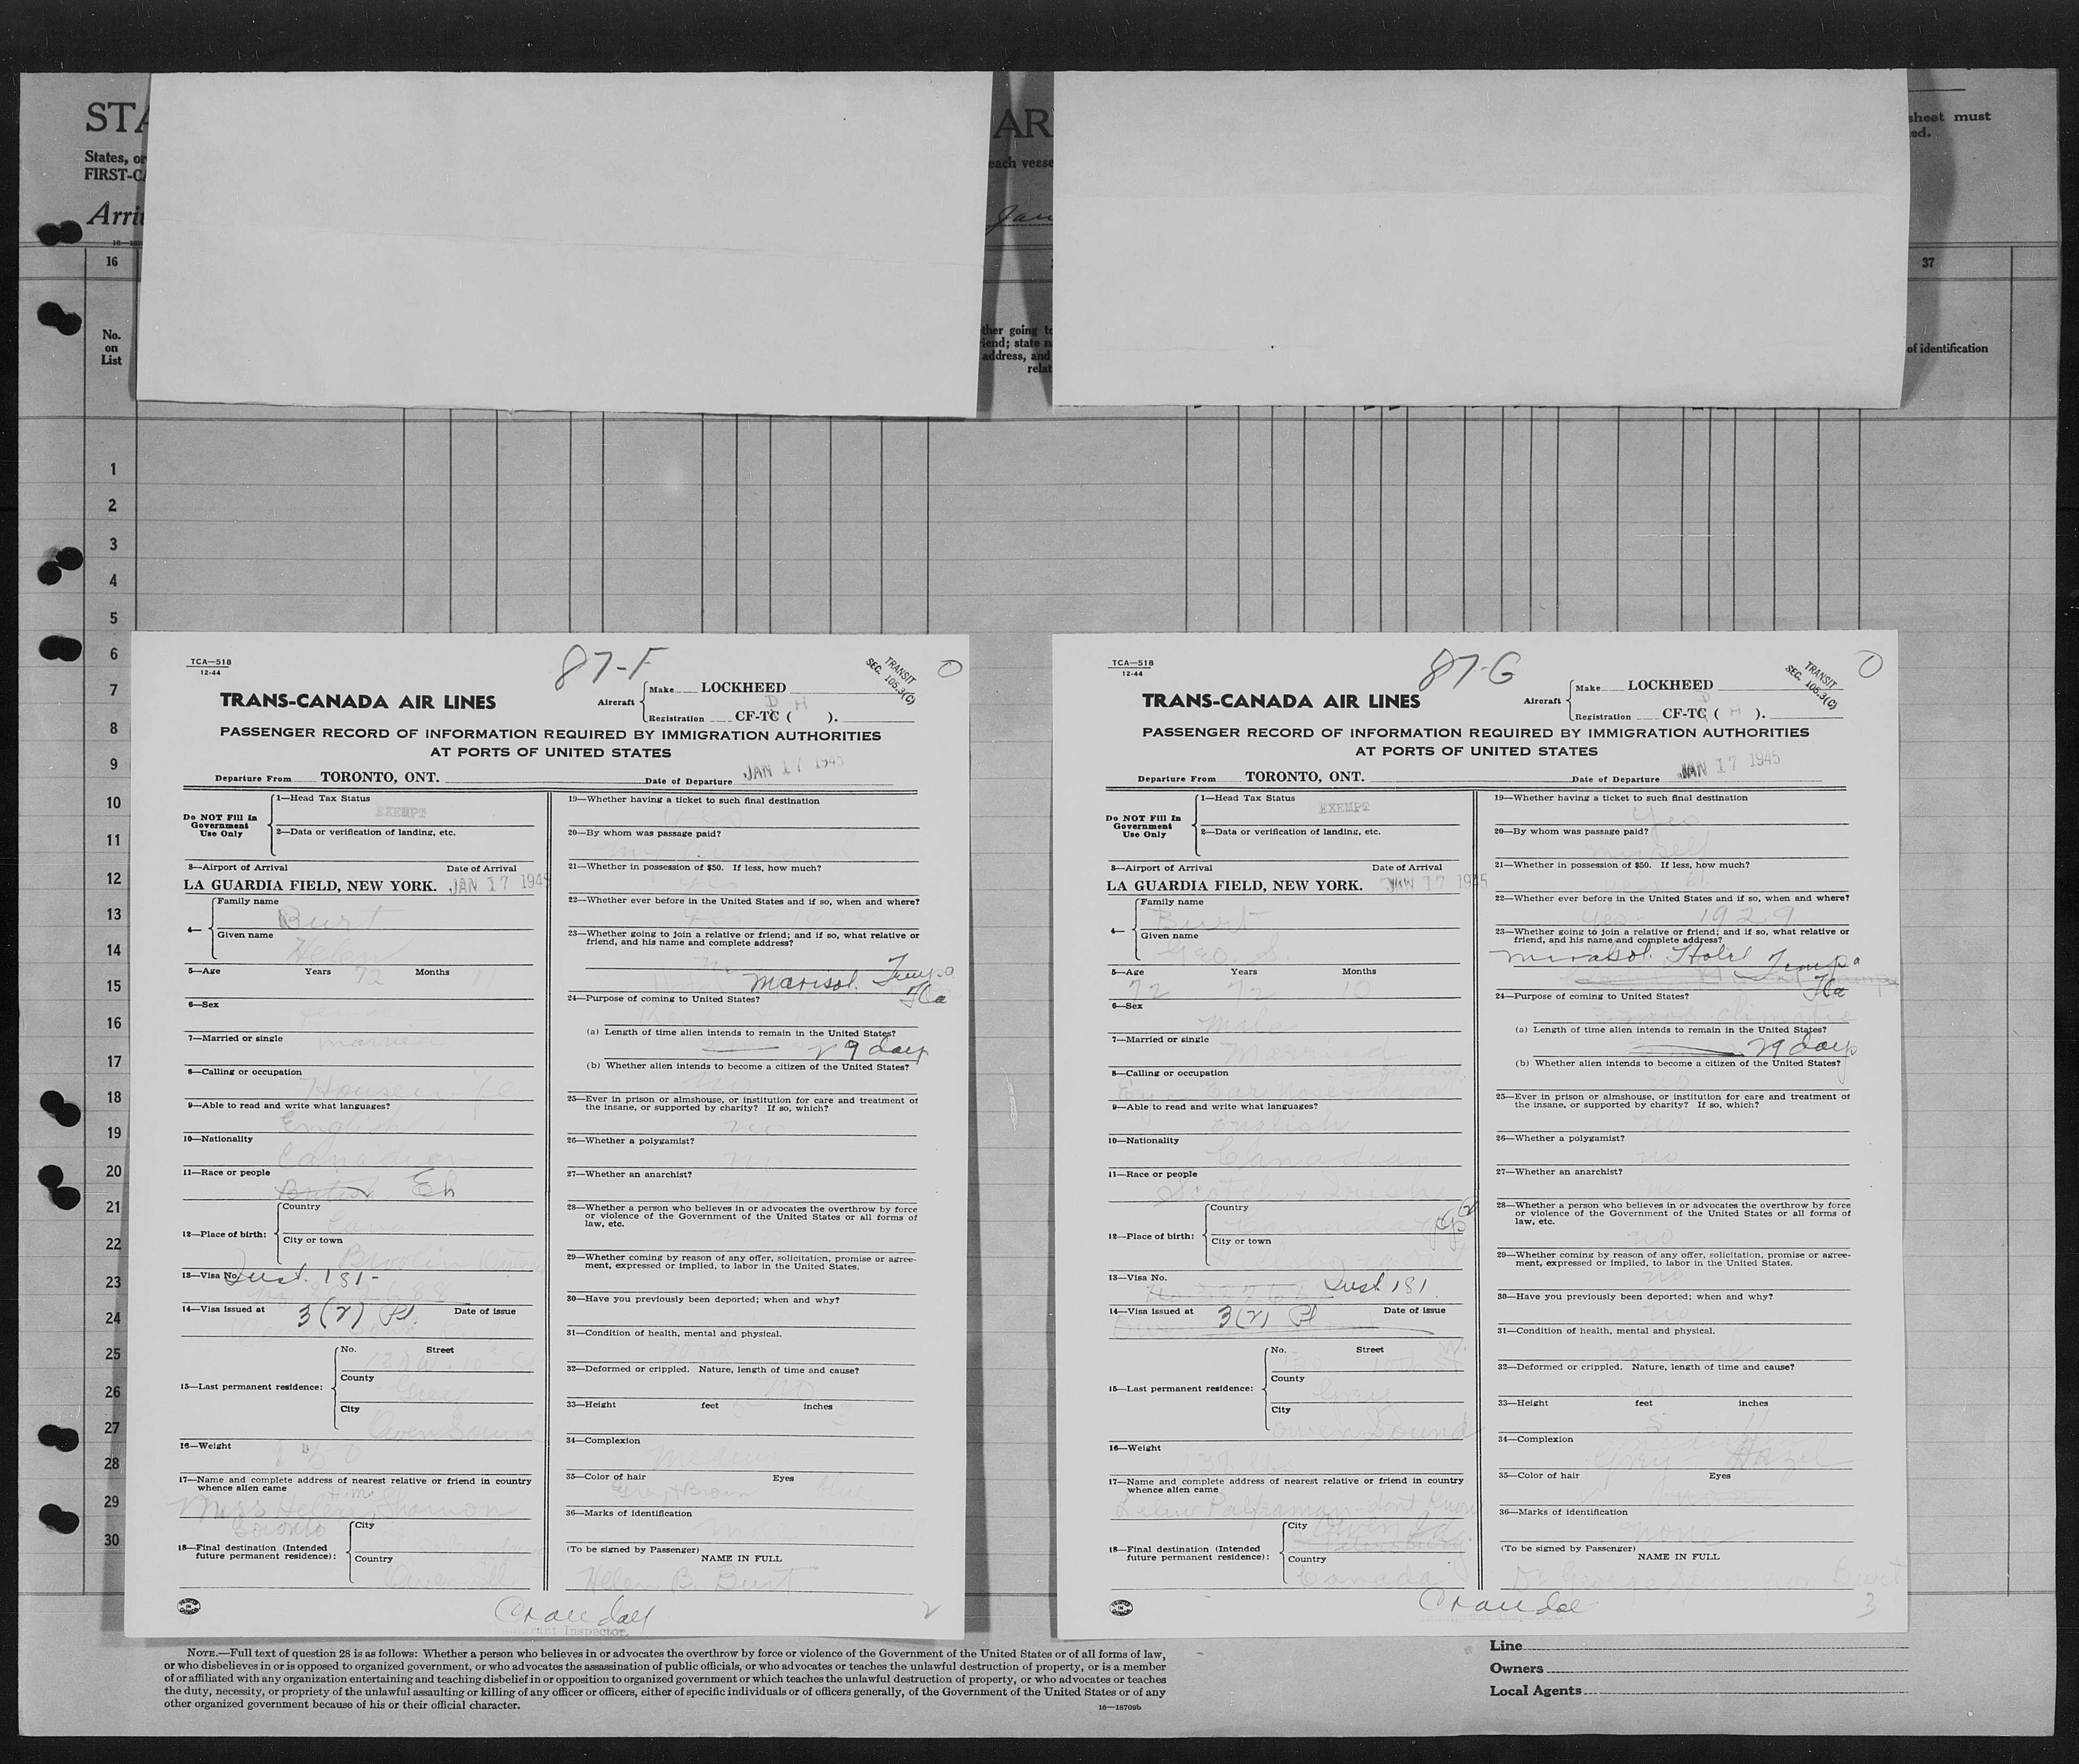 STA
AR
sheet must
ed.
States, or
each vesse
FIRST-CA
Arri
Jan
16
37
No.
on
List
ther going to
iend; state n
address, and
relat
of identification
1
2
3
4
5
6
7
8
9
10
11
12
13
14
15
16
17
18
19
20
21
22
23
24
25
26
27
28
29
30
TCA—518
12-44
87-F
TRANSIT
SEC. 105.3(C)
0
TRANS-CANADA AIR LINES
Aircraft
Make LOCKHEED
Registration CF-TC ( D H ).
PASSENGER RECORD OF INFORMATION REQUIRED BY IMMIGRATION AUTHORITIES
AT PORTS OF UNITED STATES
Departure From TORONTO, ONT. Date of Departure JAN 17 1945
Do NOT Fill In
Government
Use Only
1—Head Tax Status
EXEMPT
2—Data or verification of landing, etc.
3—Airport of Arrival Date of Arrival
LA GUARDIA FIELD, NEW YORK. JAN 17 1945
4—
Family name
Burt
Given name
Helen
5—Age Years 72 Months 11
6—Sex
7—Married or single
married
8—Calling or occupation
Housewife
9—Able to read and write what languages?
English
10—Nationality
Canadian
11—Race or people
British Eh
12—Place of birth:
Country
City or town
13—Visa No.
181-
14—Visa issued at 3(2) Date of issue
15—Last permanent residence:
No. Street
County
Grey
City
Owen Sound
16—Weight
17—Name and complete address of nearest relative or friend in country
whence alien came
Miss Helen Shannon
Toronto
18—Final destination (Intended
future permanent residence):
City
Country
19—Whether having a ticket to such final destination
20—By whom was passage paid?
21—Whether in possession of $50. If less, how much?
22—Whether ever before in the United States and if so, when and where?
23—Whether going to join a relative or friend; and if so, what relative or
friend, and his name and complete address?
Marisol. Tampa
Fla
24—Purpose of coming to United States?
(a) Length of time alien intends to remain in the United States?
29 days
(b) Whether alien intends to become a citizen of the United States?
25—Ever in prison or almshouse, or institution for care and treatment of
the insane, or supported by charity? If so, which?
no
26—Whether a polygamist?
no
27—Whether an anarchist?
28—Whether a person who believes in or advocates the overthrow by force
or violence of the Government of the United States or all forms of
law, etc.
29—Whether coming by reason of any offer, solicitation, promise or agree-
ment, expressed or implied, to labor in the United States.
30—Have you previously been deported; when and why?
31—Condition of health, mental and physical.
32—Deformed or crippled. Nature, length of time and cause?
no
33—Height feet 5 inches
34—Complexion
Medium
35—Color of hair Eyes
Grey & Brown Blue
36—Marks of identification
(To be signed by Passenger)
NAME IN FULL
Helen B. Burt
Crandall
Immigrant Inspector.
2
TCA—518
12-44
87-G
TRANSIT
SEC. 105.3(C)
0
TRANS-CANADA AIR LINES
Aircraft
Make LOCKHEED
Registration CF-TC ( D H ).
PASSENGER RECORD OF INFORMATION REQUIRED BY IMMIGRATION AUTHORITIES
AT PORTS OF UNITED STATES
Departure From TORONTO, ONT. Date of Departure JAN 17 1945
Do NOT Fill In
Government
Use Only
1—Head Tax Status
EXEMPT
2—Data or verification of landing, etc.
3—Airport of Arrival Date of Arrival
LA GUARDIA FIELD, NEW YORK. JAN 17 1945
4—
Family name
Burt
Given name
Geo. S.
5—Age Years Months
72 72 10
6—Sex
Male
7—Married or single
Married
8—Calling or occupation
Eye Ear Nose
9—Able to read and write what languages?
English
10—Nationality
Canadian
11—Race or people
Scotch & Irish
12—Place of birth:
Country
City or town
13—Visa No.
181
14—Visa issued at 3(2) Date of issue
15—Last permanent residence:
No. Street
County
Grey
City
Owen Sound
16—Weight
17—Name and complete address of nearest relative or friend in country
whence alien came
Palframan don't know
18—Final destination (Intended
future permanent residence):
City
Owen Sd.
Country
Canada
19—Whether having a ticket to such final destination
Yes
20—By whom was passage paid?
myself
21—Whether in possession of $50. If less, how much?
22—Whether ever before in the United States and if so, when and where?
Yes - 1929
23—Whether going to join a relative or friend; and if so, what relative or
friend, and his name and complete address?
Mirasol. Hotel Tampa
Fla
24—Purpose of coming to United States?
climatic
(a) Length of time alien intends to remain in the United States?
29 days
(b) Whether alien intends to become a citizen of the United States?
no
25—Ever in prison or almshouse, or institution for care and treatment of
the insane, or supported by charity? If so, which?
no
26—Whether a polygamist?
no
27—Whether an anarchist?
no
28—Whether a person who believes in or advocates the overthrow by force
or violence of the Government of the United States or all forms of
law, etc.
no
29—Whether coming by reason of any offer, solicitation, promise or agree-
ment, expressed or implied, to labor in the United States.
no
30—Have you previously been deported; when and why?
no
31—Condition of health, mental and physical.
normal
32—Deformed or crippled. Nature, length of time and cause?
no
33—Height feet inches
5 11
34—Complexion
Grey Hazel
35—Color of hair Eyes
36—Marks of identification
none
(To be signed by Passenger)
NAME IN FULL
Dr George Burt
Crandall
3
NOTE.—Full text of question 28 is as follows: Whether a person who believes in or advocates the overthrow by force or violence of the Government of the United States or of all forms of law,
or who disbelieves in or is opposed to organized government, or who advocates the assassination of public officials, or who advocates or teaches the unlawful destruction of property, or is a member
of or affiliated with any organization entertaining and teaching disbelief in or opposition to organized government or which teaches the unlawful destruction of property, or who advocates or teaches
the duty, necessity, or propriety of the unlawful assaulting or killing of any officer or officers, either of specific individuals or of officers generally, of the Government of the United States or of any
other organized government because of his or their official character.
16—18709b
Line
Owners
Local Agents